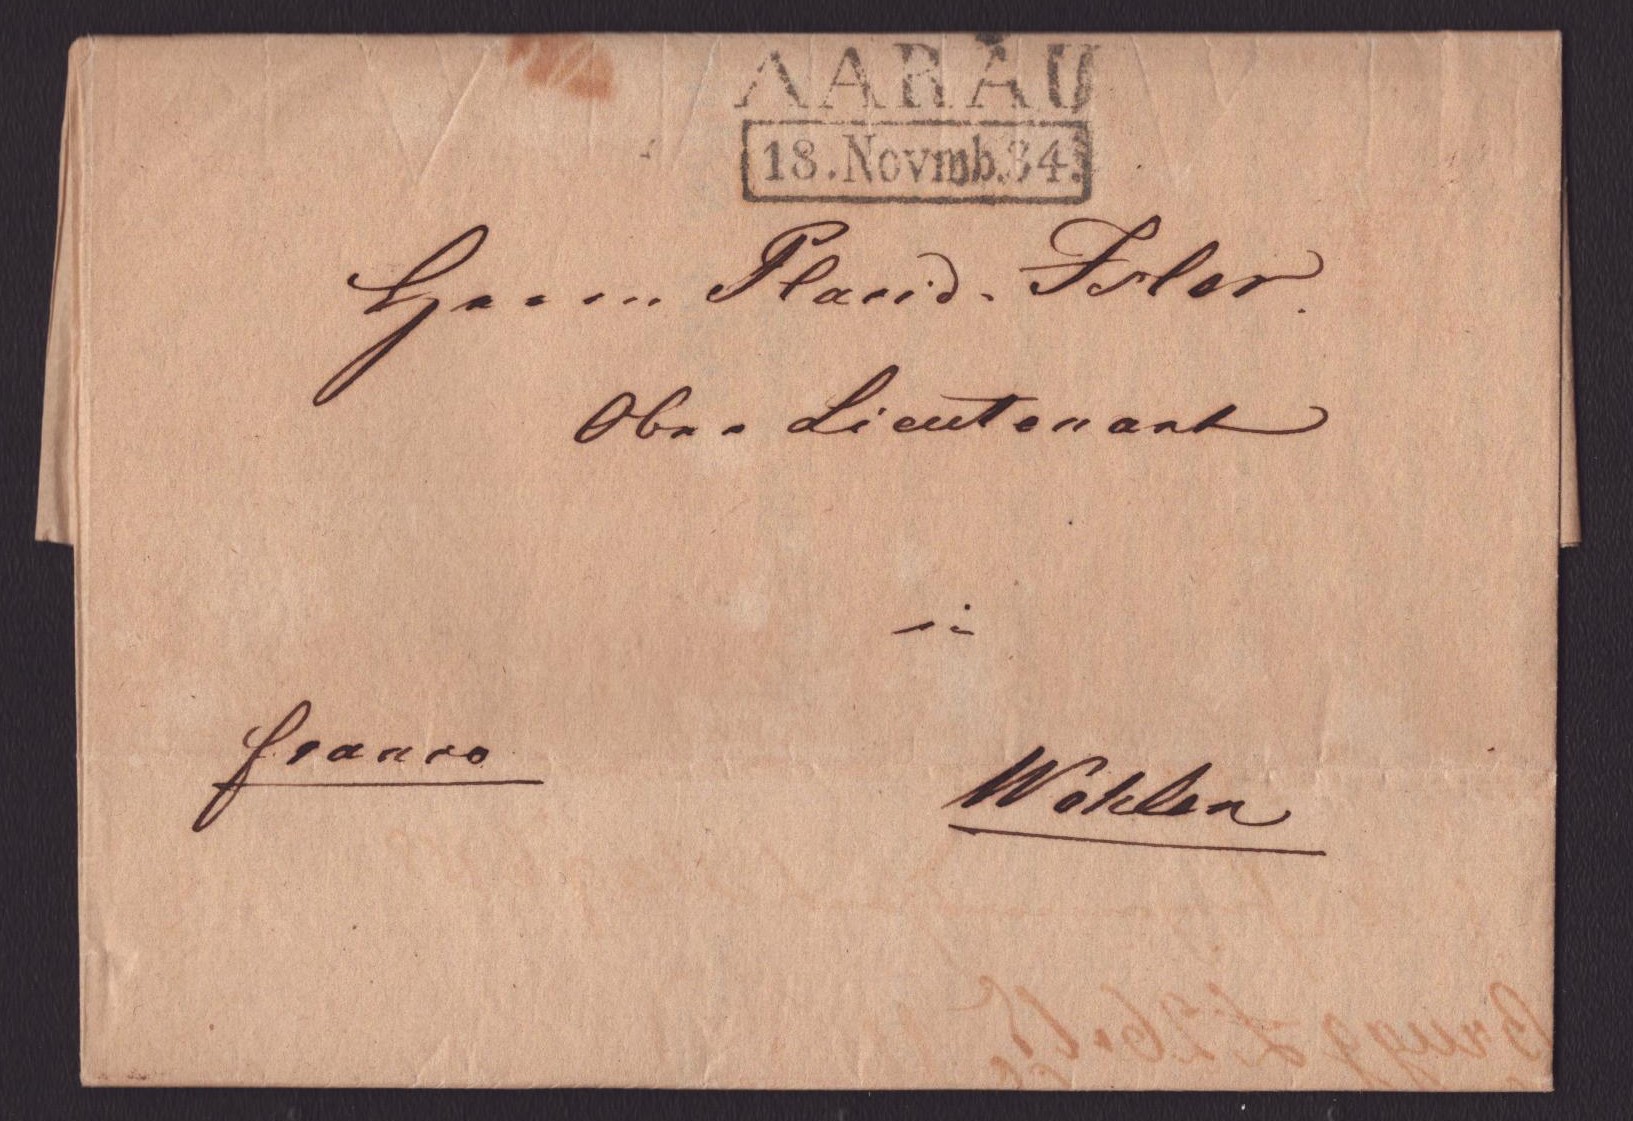 AARAU
18. Novmb. 34.
Herrn Placid. Isler.
Ober Lieutenant
in
franco
Wohlen
Brugg